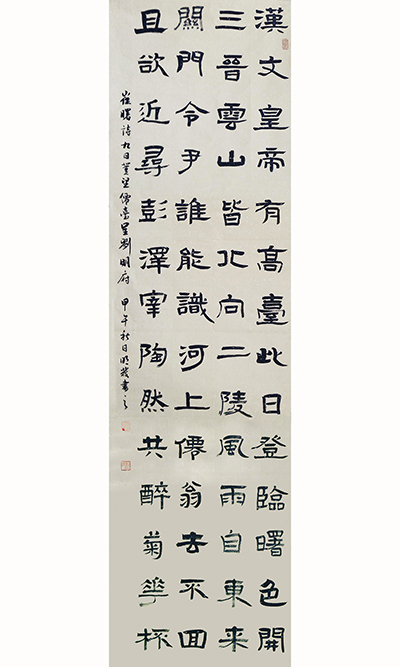 漢文皇帝有高臺此日登臨曙色開
三晉雲山皆北向二陵風雨自東来
關門令尹誰能識河上僊翁去不回
且欲近尋彭澤宰陶然共醉菊華杯
崔曙詩九日登望僊臺呈劉明府 甲午秋日明書之